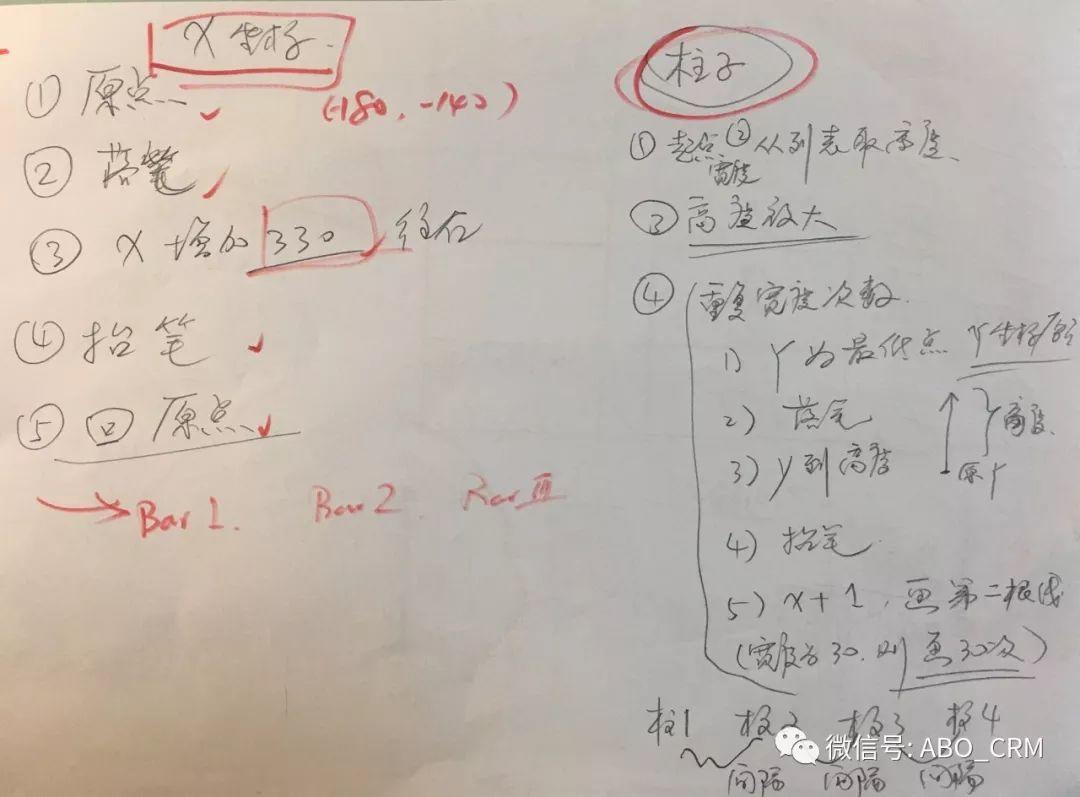 X 坐标
① 原点 (-180, -140)
② 落笔
③ X 增加 330 往右
④ 抬笔
⑤ 回原点
Bar 1. Bar 2. Bar III
柱子
① 起点 ② 从列表取高度
宽度
③ 高度放大
④ 重复宽度次数
1) Y为最低点 Y坐标原点
2) 落笔
3) Y到高度
高度
原Y
4) 抬笔
5) x+1, 画第二根线
(宽度为30, 则画30次)
柱1 柱2 柱3 柱4
间隔 间隔 间隔
微信号: ABO_CRM